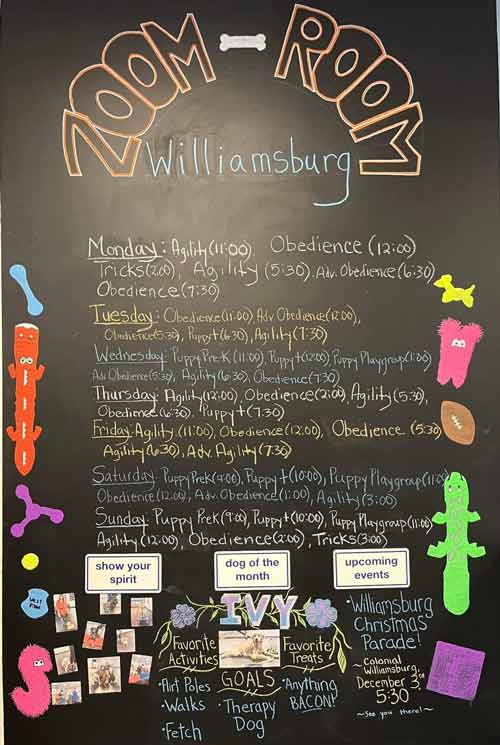 ZOOM ROOM
Williamsburg
Monday: Agility (11:00) Obedience (12:00)
Tricks (2:00), Agility (5:30), Adv. Obedience (6:30)
Obedience (7:30)
Tuesday: Obedience (11:00) Adv Obedience (12:00),
Obedience (5:30), Puppy+ (6:30), Agility (7:30)
Wednesday: Puppy PreK (11:00), Puppy+ (12:00) Puppy Playgroup (1:00)
Adv. Obedience (5:30), Agility (6:30), Obedience (7:30)
Thursday: Agility (12:00), Obedience (2:00), Agility (5:30),
Obedience (6:30), Puppy+ (7:30)
Friday: Agility (11:00), Obedience (12:00), Obedience (5:30)
Agility (6:30), Adv. Agility (7:30)
Saturday: Puppy Prek (9:00), Puppy+ (10:00), Puppy Playgroup (11:00)
Obedience (12:00), Adv. Obedience (1:00), Agility (3:00)
Sunday: Puppy PreK (9:00), Puppy+ (10:00), Puppy Playgroup (11:00)
Agility (12:00), Obedience (2:00), Tricks (3:00)
show your
spirit
dog of the
month
upcoming
events
IVY
Favorite
Activities
•Flirt Poles
•Walks
•Fetch
GOALS
•Therapy
Dog
Favorite
Treats
•Anything
BACON!
•Williamsburg
Christmas
Parade!
~Colonial
Williamsburg
December 3rd
5:30
~See you there!~